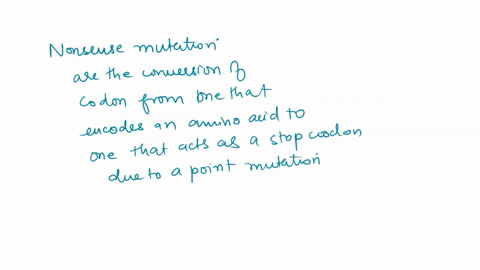 Nonsense mutation:
are the conversion of
codon from one that
encodes an amino acid to
one that acts as a stop codon
due to a point mutation